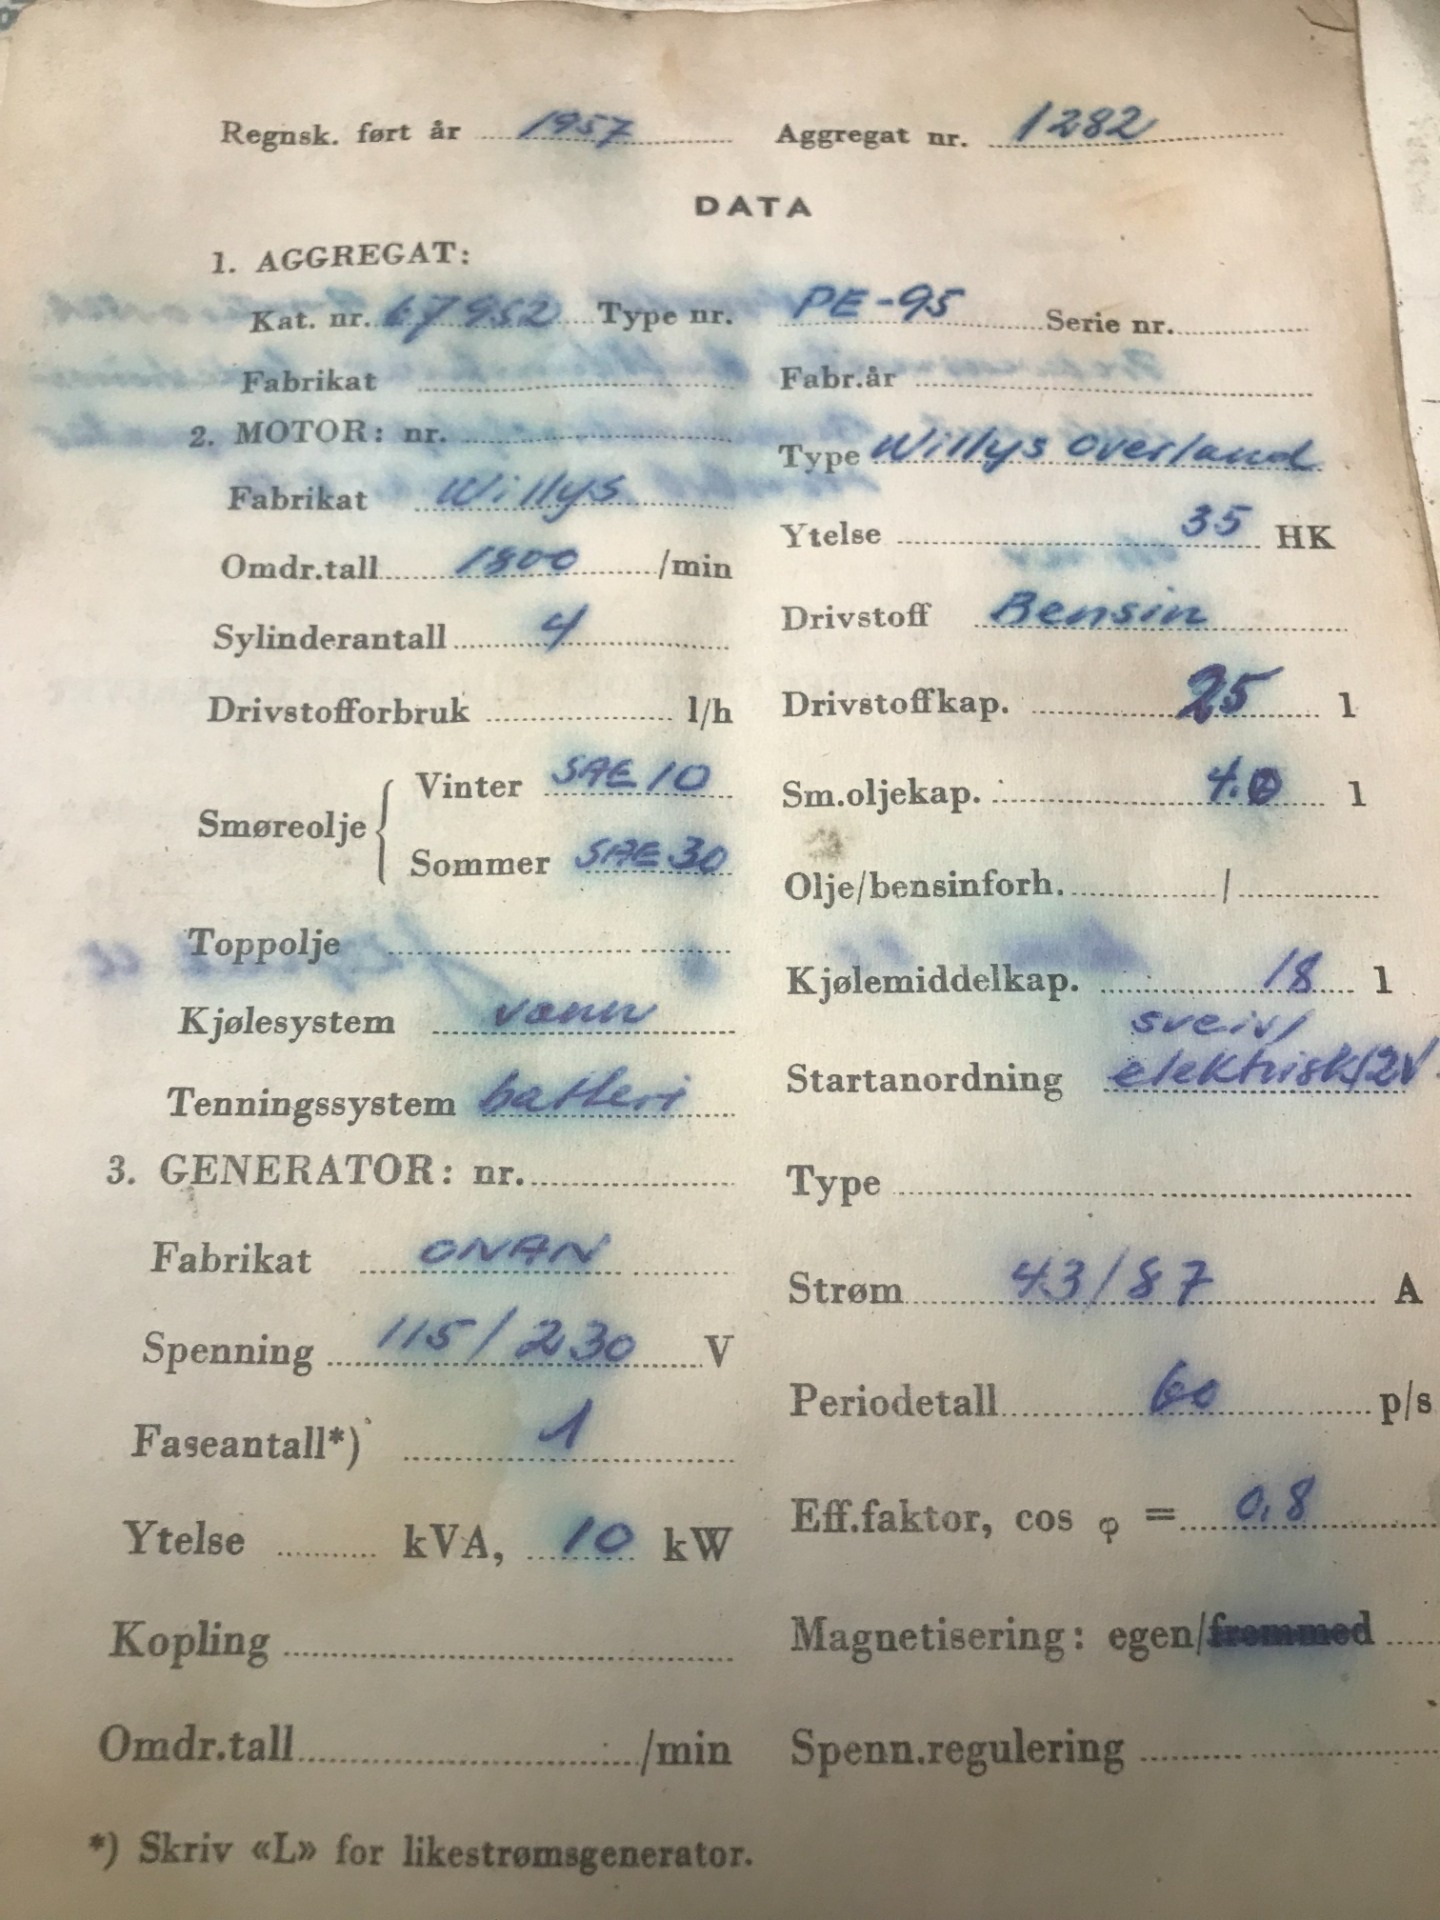 Regnsk. ført år 1957 Aggregat nr. 1282
DATA
1. AGGREGAT:
Kat. nr. 67952 Type nr. PE-95 Serie nr.
Fabrikat Fabr.år
2. MOTOR: nr. Type Willys Overland
Fabrikat Willys Ytelse 35 HK
Omdr.tall 1800 /min Drivstoff Bensin
Sylinderantall 4 Drivstoffkap. 25 l
Drivstofforbruk l/h Sm.oljekap. 4.0 l
Smøreolje Vinter SAE 10
Sommer SAE 30
Olje/bensinforh. /
Toppolje Kjølemiddelkap. 18 l
Kjølesystem vann
sveiv/
Tenningssystem batteri Startanordning elektrisk 12V.
3. GENERATOR: nr. Type
Fabrikat ONAN Strøm 43/87 A
Spenning 115/230 V Periodetall 60 p/s
Faseantall*) 1 Eff.faktor, cos φ = 0,8
Ytelse kVA, 10 kW Magnetisering: egen/fremmed
Kopling
Omdr.tall /min Spenn.regulering
*) Skriv «L» for likestrømsgenerator.